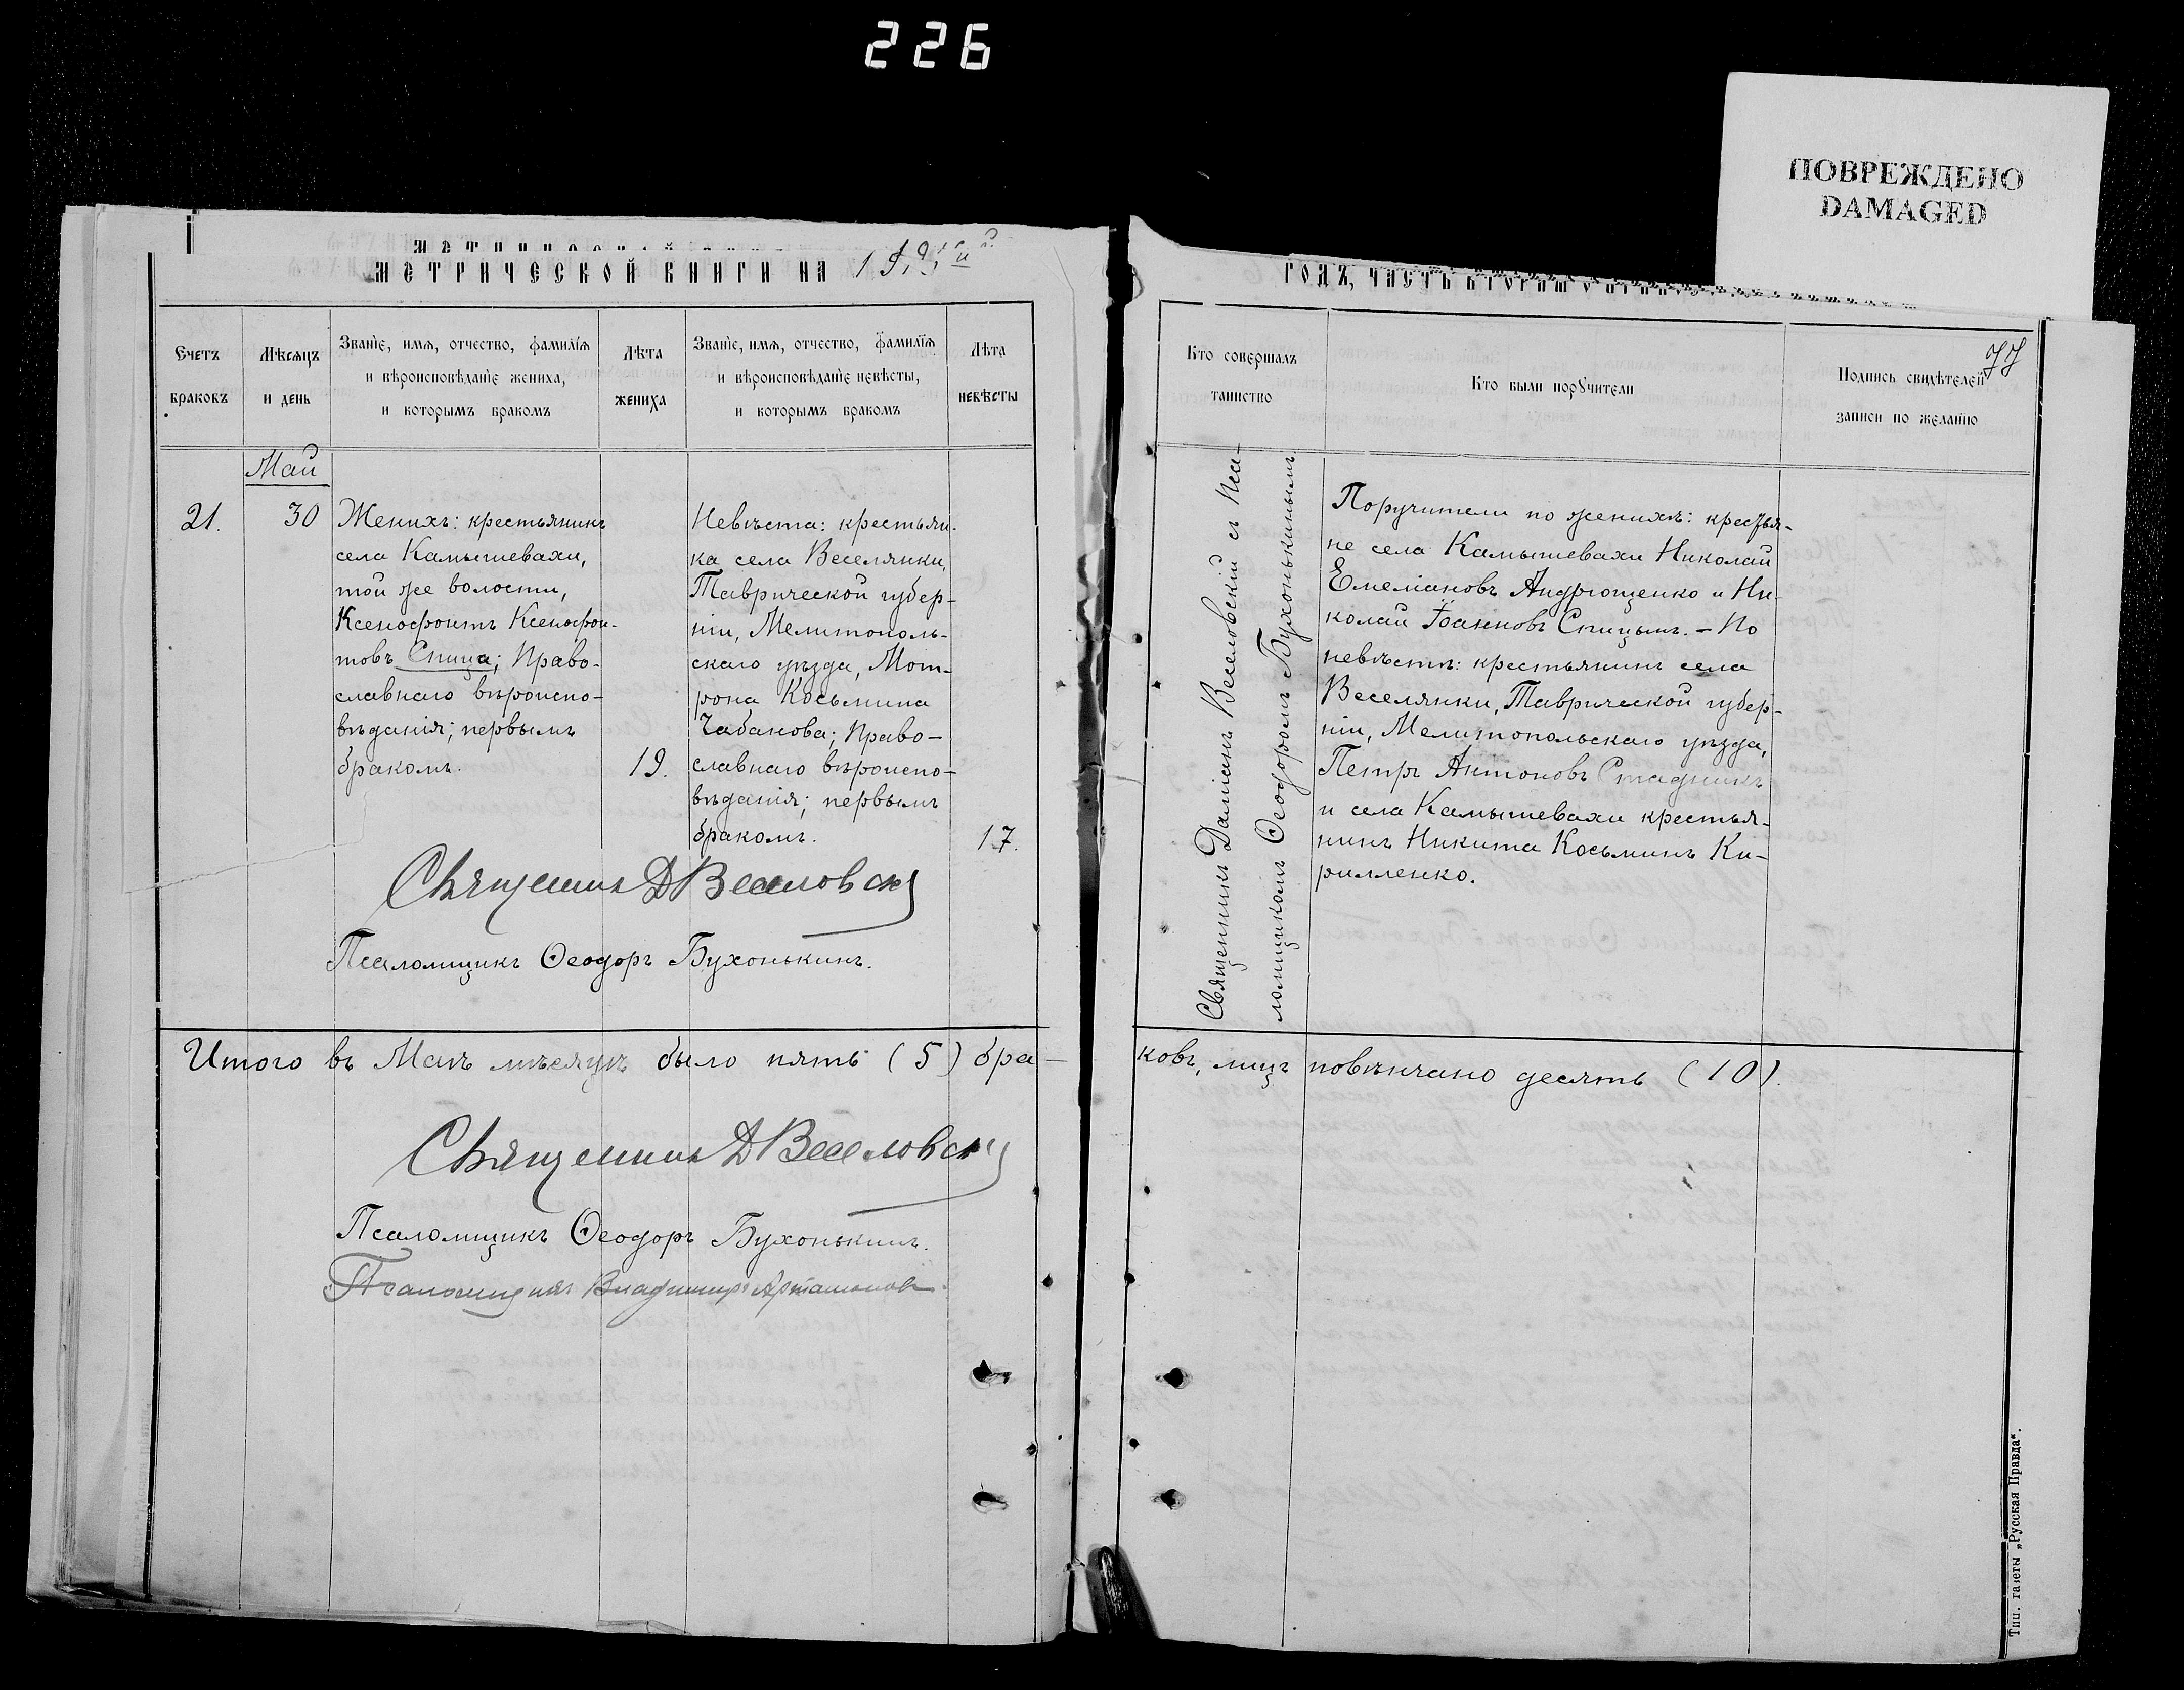 226
ПОВРЕЖДЕНО
DAMAGED
МЕТРИЧЕСКОЙ КНИГИ НА
ГОДЪ, ЧАСТЬ ВТОРАЯ
77
Счетъ
браковъ
Мѣсяцъ
и день
Званіе, имя, отчество, фамилія
и вѣроисповѣданіе жениха,
и которымъ бракомъ
Лѣта
жениха
Званіе, имя, отчество, фамилія
и вѣроисповѣданіе невѣсты,
и которымъ бракомъ
Лѣта
невѣсты
Кто совершалъ
таинство
Кто были поручители
Подпись свидѣтелей
записи по желанію
Май
21.
30
Женихъ: крестьянинъ
села Камышевахи,
той же волости,
Ксенофонтъ Ксенофон-
товъ Спица; Право-
славнаго вѣроиспо-
вѣданія; первымъ
бракомъ.
19.
Невѣста: крестьян-
ка села Веселянки,
Таврической губер-
ніи, Мелитополь-
скаго уѣзда, Мот-
рона Косьмина
Чабанова; Право-
славнаго вѣроиспо-
вѣданія; первымъ
бракомъ.
17.
Священникъ Даміанъ Веселовскій съ Пса-
ломщикомъ Ѳеодоромъ Бухонькинымъ
Поручители по женихѣ: крестья-
не села Камышевахи Николай
Емеліановъ Андрющенко и Ни-
колай Іоанновъ Спицынъ. - По
невѣстѣ: крестьянинъ села
Веселянки, Таврической губер-
ніи, Мелитопольскаго уѣзда,
Петръ Антоновъ Стадникъ
и села Камышевахи крестья-
нинъ Никита Косьминъ Ки-
рилленко.
Священникъ Д Веселовскій
Псаломщикъ Ѳеодоръ Бухонькинъ.
Итого въ Маѣ мѣсяцѣ было пять (5) бра-
ковъ, лицъ повѣнчано десять (10).
Священникъ Д Веселовскій
Псаломщикъ Ѳеодоръ Бухонькинъ.
Псаломщикъ Владимиръ Артамонов
Тип. газеты „Русская Правда“.